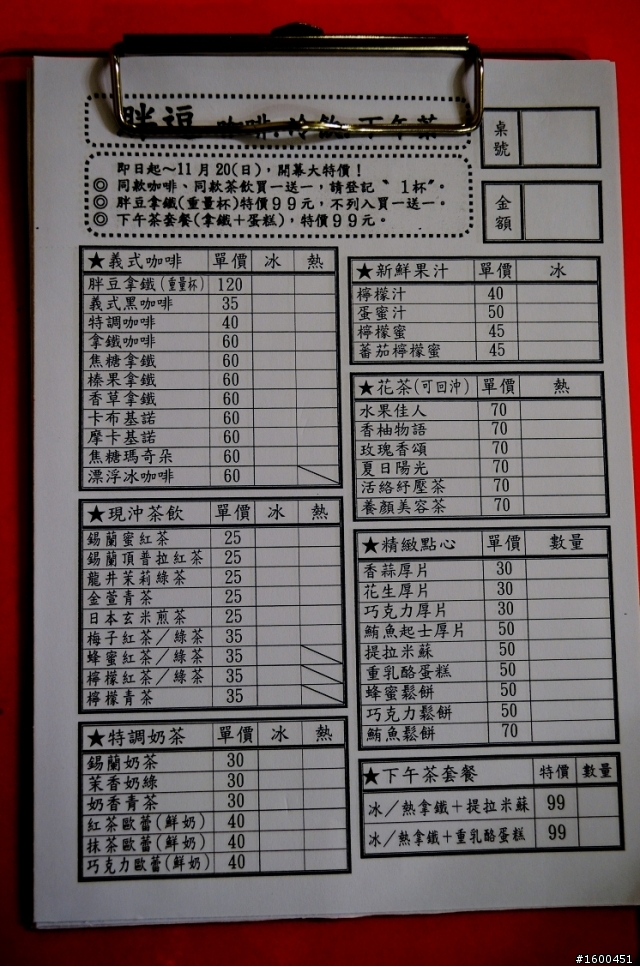 胖逗 咖啡.冷飲.下午茶
桌號
金額
即日起～11月20(日)，開幕大特價！
◎ 同款咖啡、同款茶飲買一送一，請登記〝1杯〞。
◎ 胖豆拿鐵(重量杯)特價99元，不列入買一送一。
◎ 下午茶套餐(拿鐵＋蛋糕)，特價99元。
★義式咖啡 單價 冰 熱
胖豆拿鐵(重量杯) 120
義式黑咖啡 35
特調咖啡 40
拿鐵咖啡 60
焦糖拿鐵 60
榛果拿鐵 60
香草拿鐵 60
卡布基諾 60
摩卡基諾 60
焦糖瑪奇朵 60
漂浮冰咖啡 60
★現沖茶飲 單價 冰 熱
錫蘭蜜紅茶 25
錫蘭頂普拉紅茶 25
龍井茉莉綠茶 25
金萱青茶 25
日本玄米煎茶 25
梅子紅茶／綠茶 35
蜂蜜紅茶／綠茶 35
檸檬紅茶／綠茶 35
檸檬青茶 35
★特調奶茶 單價 冰 熱
錫蘭奶茶 30
茉香奶綠 30
奶香青茶 30
紅茶歐蕾(鮮奶) 40
抹茶歐蕾(鮮奶) 40
巧克力歐蕾(鮮奶) 40
★新鮮果汁 單價 冰
檸檬汁 40
蛋蜜汁 50
檸檬蜜 45
蕃茄檸檬蜜 45
★花茶(可回沖) 單價 熱
水果佳人 70
香柚物語 70
玫瑰香頌 70
夏日陽光 70
活絡紓壓茶 70
養顏美容茶 70
★精緻點心 單價 數量
香蒜厚片 30
花生厚片 30
巧克力厚片 30
鮪魚起士厚片 50
提拉米蘇 50
重乳酪蛋糕 50
蜂蜜鬆餅 50
巧克力鬆餅 50
鮪魚鬆餅 70
★下午茶套餐 特價 數量
冰／熱拿鐵＋提拉米蘇 99
冰／熱拿鐵＋重乳酪蛋糕 99
#1600451